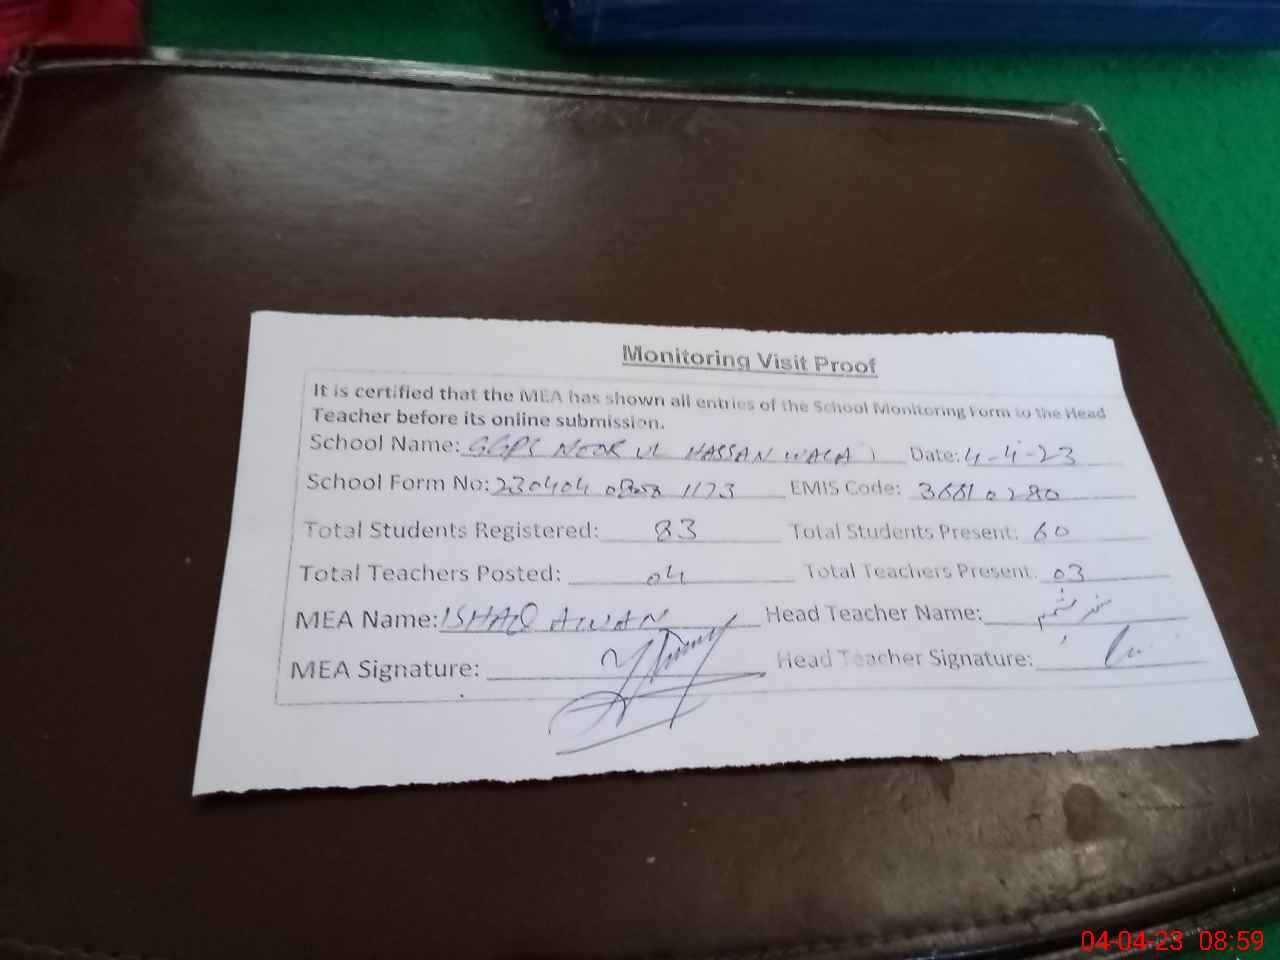 Monitoring Visit Proof
It is certified that the MEA has shown all entries of the School Monitoring Form to the Head
Teacher before its online submission.
School Name: GGPS NOOR UL HASSAN WALA Date: 4-4-23
School Form No: 230404 1173 EMIS Code: 36610280
Total Students Registered: 83 Total Students Present: 60
Total Teachers Posted: 04 Total Teachers Present: 03
MEA Name: ISHAQ AWAN Head Teacher Name:
MEA Signature: Head Teacher Signature:
04-04-23 08:59